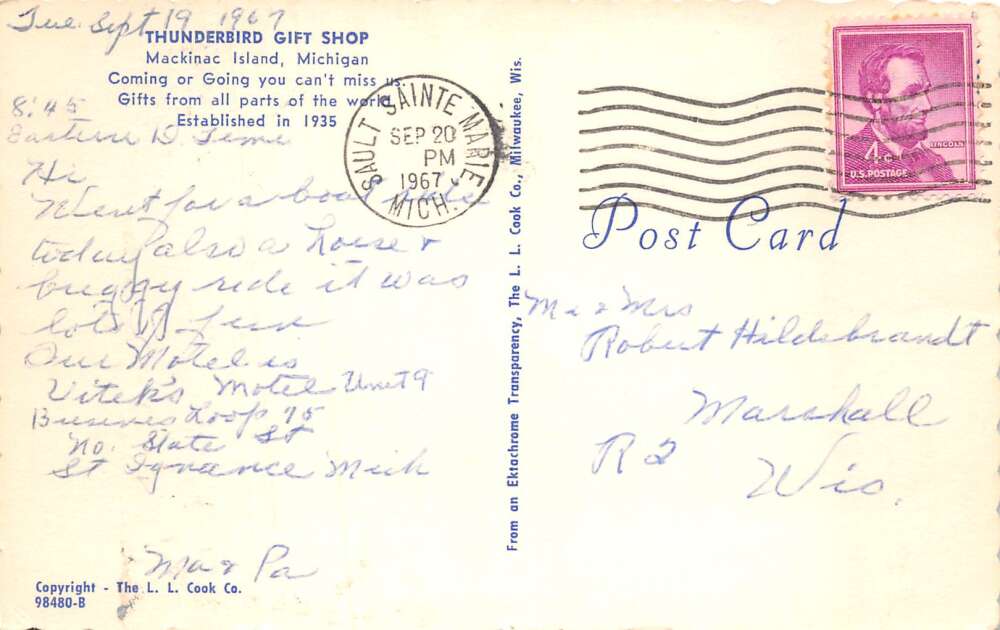 Tue. Sept 19 1967
THUNDERBIRD GIFT SHOP
Mackinac Island, Michigan
Coming or Going you can't miss us.
Gifts from all parts of the world.
Established in 1935
8:45
Eastern D. Time
Hi
Went for a boat ride
today also a horse &
buggy ride it was
lots of fun
Our Motel is
Vitek's Motel Unit 9
Business Loop 75
No. State St
St Ignance Mich
Ma & Pa
Copyright - The L. L. Cook Co.
98480-B
From an Ektachrome Transparency, The L. L. Cook Co., Milwaukee, Wis.
SAULT SAINTE MARIE
SEP 20
PM
1967
MICH.
4¢
LINCOLN
U.S. POSTAGE
Post Card
Mr & Mrs
Robert Hildebrandt
Marshall
R 2
Wis.